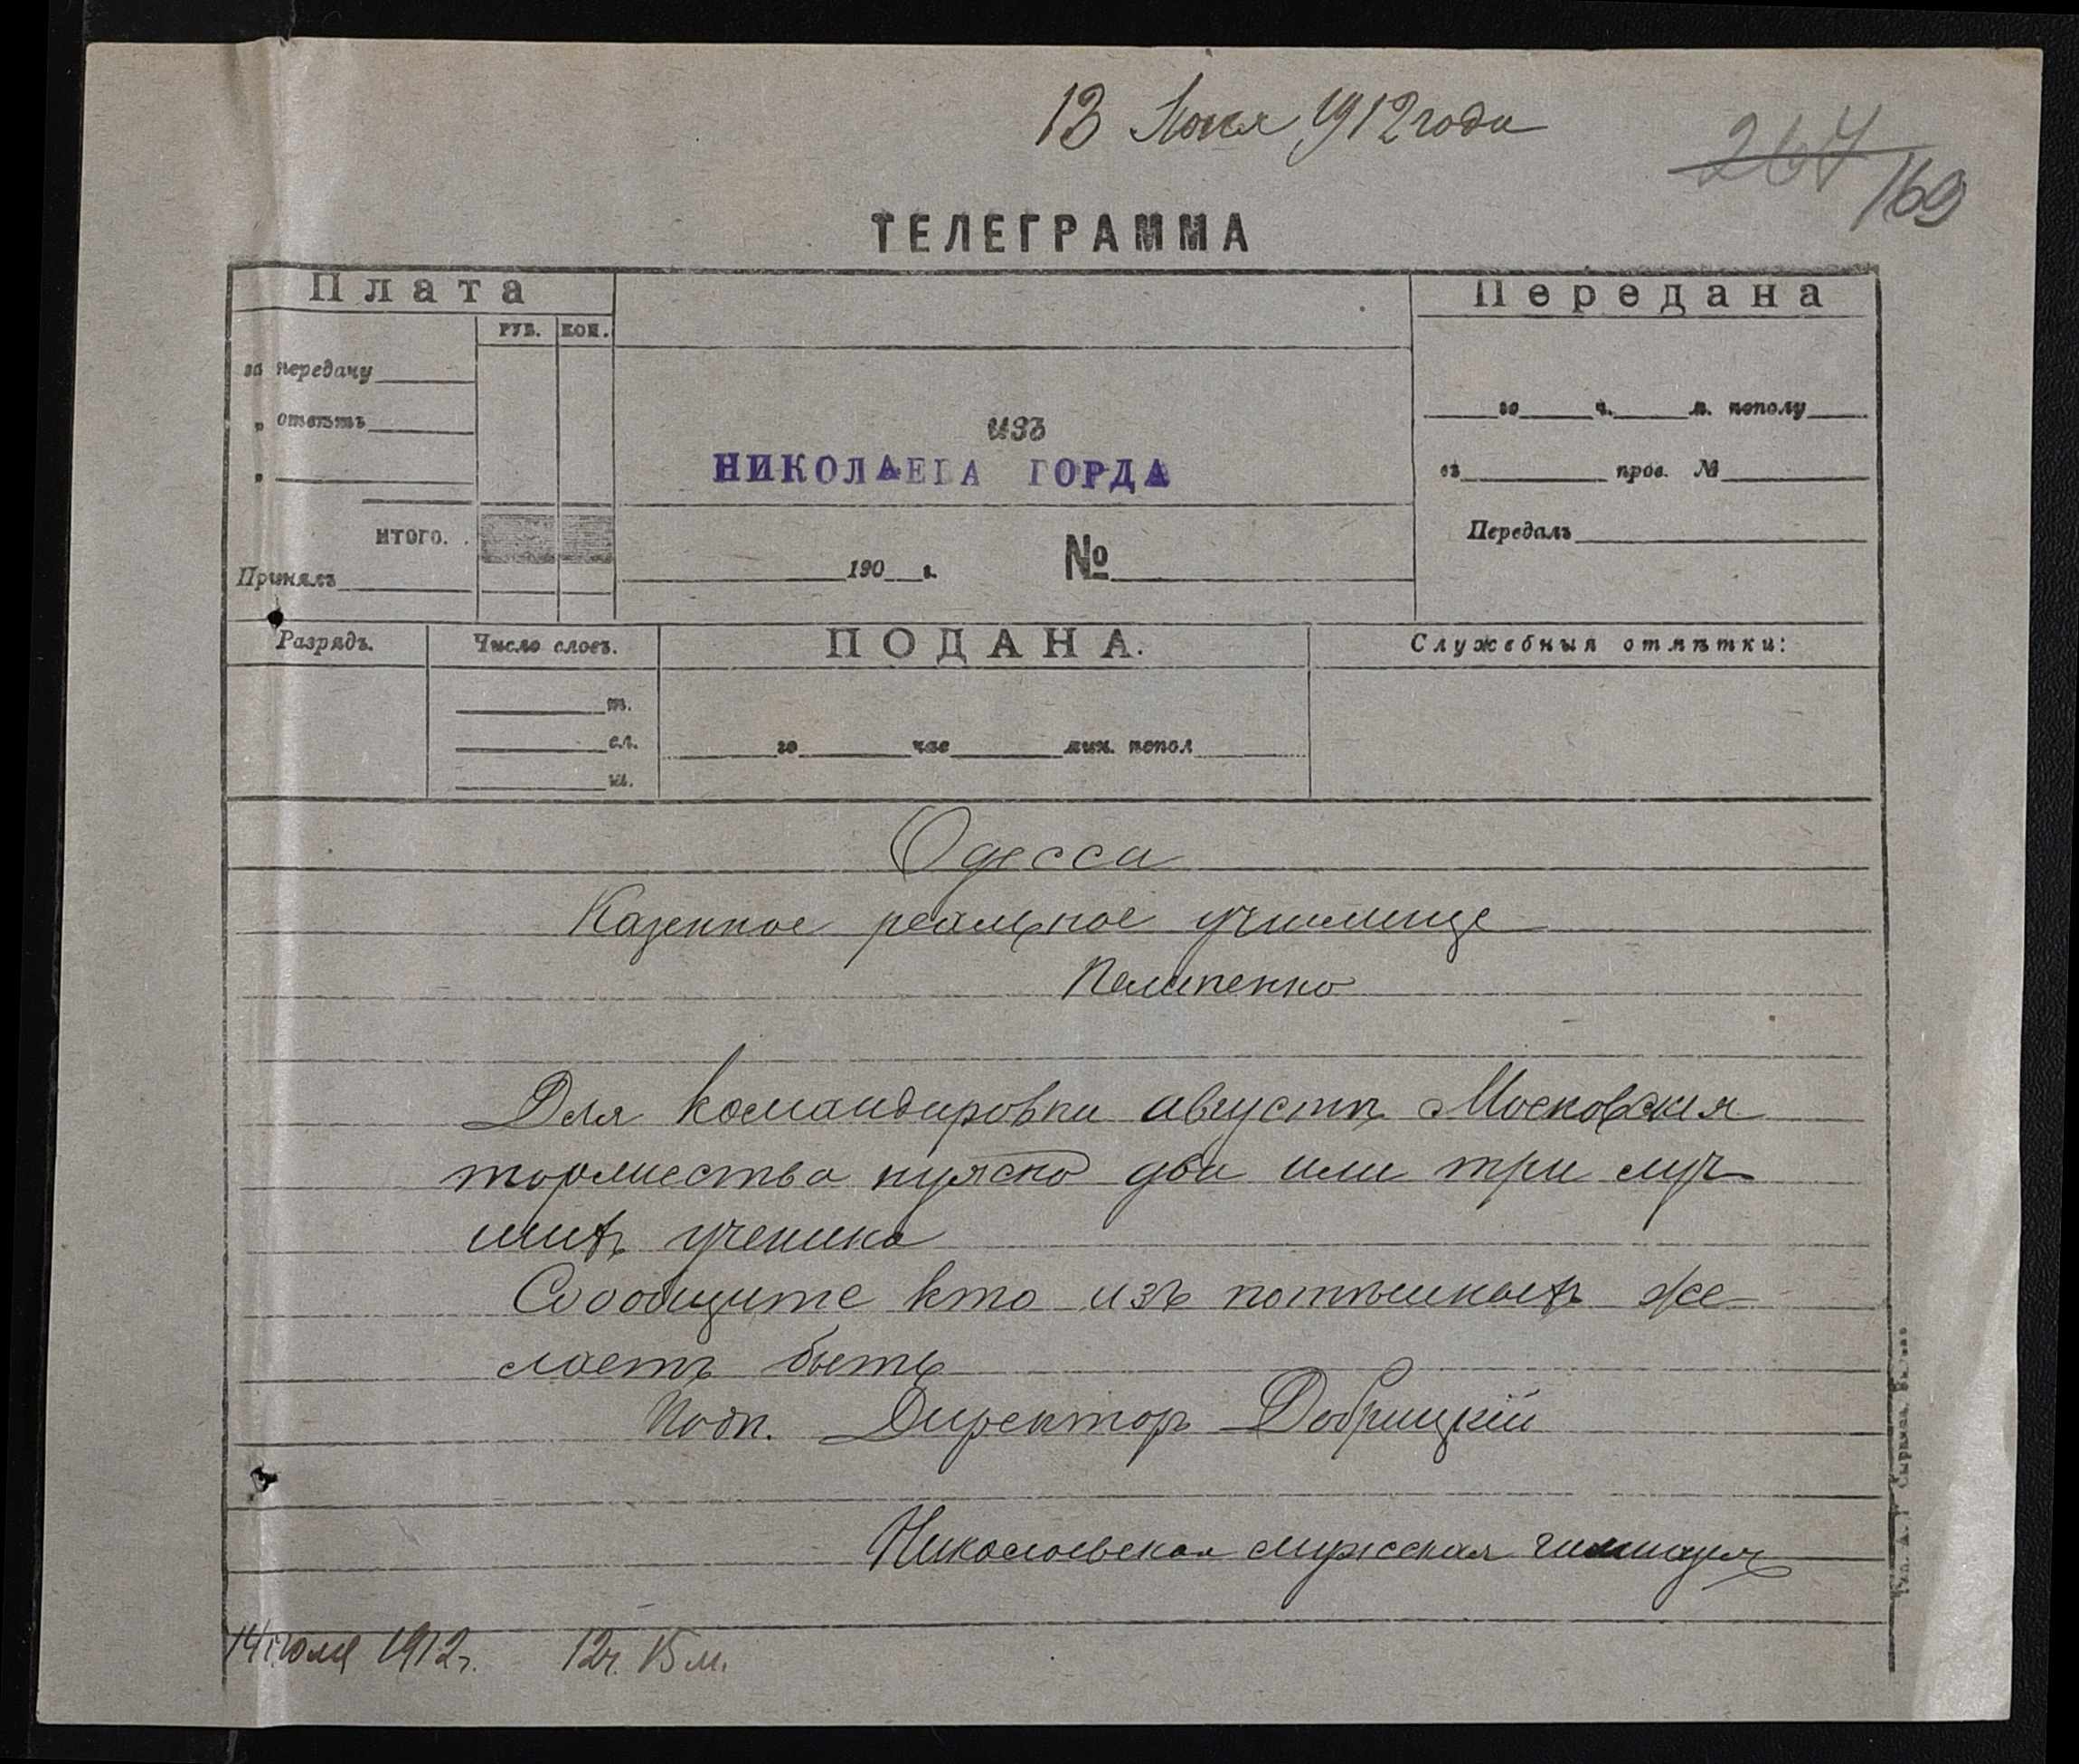 13 Июля 1912 года
267
169
ТЕЛЕГРАММА
Плата
РУБ. КОП.
за передачу
„ ответъ
„
ИТОГО.
Принялъ
изъ
НИКОЛАЕВА ГОРДА
190 г. №
Передана
го ч. м. пополу
въ пров. №
Передалъ
Разрядъ.
Число словъ.
т.
сл.
ш.
ПОДАНА.
го час мин. попол
Служебныя отмѣтки:
Одесса
Казенное реальное училище
Пелипенко
Для командировки августѣ Московскія
торжества нужно два или три луч-
шихъ ученика
Сообщите кто изъ потѣшныхъ же-
лаетъ быть
Подп. Директоръ Добрицкій
Николаевская мужская гимназія
14 іюля 1912 г. 12 ч. 15 м.
Тип. А. Г. Сыркина, Вильна